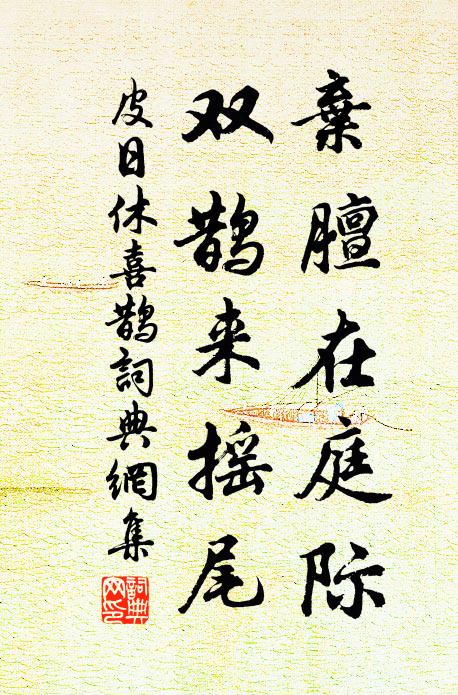 棄膻在庭际
双鹊来摇尾
皮日休喜鹊詞典網集
詞典网印